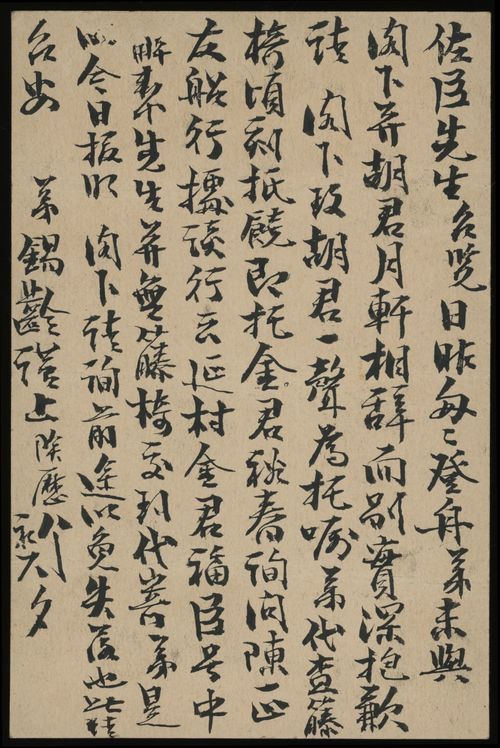 佐臣先生台览日昨匆匆登舟弟未與
阁下并胡君月軒相辞而别實深抱歉
請 阁下致胡君一聲為托嘱弟代查籐
椅頃刻抵饒即托金君裕春詢问陳正
友船行據該行云延村金君福臣号中
先生并無籐椅交到代寄弟是
以今日报明 阁下請詢前途以免失落也此請
台安 弟錫齡謹上陰歷八月初六夕